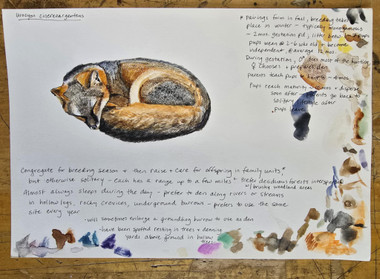 Urocyon cinereoargenteus
* Pairings form in fall, breeding takes
place in winter - typically monogamous
- 2 mo. gestation pd;
pups wean @ 2-6 wks old → become
independent @ 4 months
During gestation, ♂ does most of the hunting
♀ chooses + prepares den
parents teach pups hunting
Pups reach maturity + disperse
soon after - parents go back to
solitary lifestyle after
pups
Congregate for breeding season + then raise + care for offspring in family units,
but otherwise solitary - each has a range up to a few miles * Prefer deciduous forests interspersed
w/ brushy woodland areas
Almost always sleeps during the day - prefer to den along rivers or streams
in hollow logs, rocky crevices, underground burrows - prefers to use the same
site every year
- will sometimes enlarge a groundhog burrow to use as den
- have been spotted resting in trees + denning
yards above ground in hollow